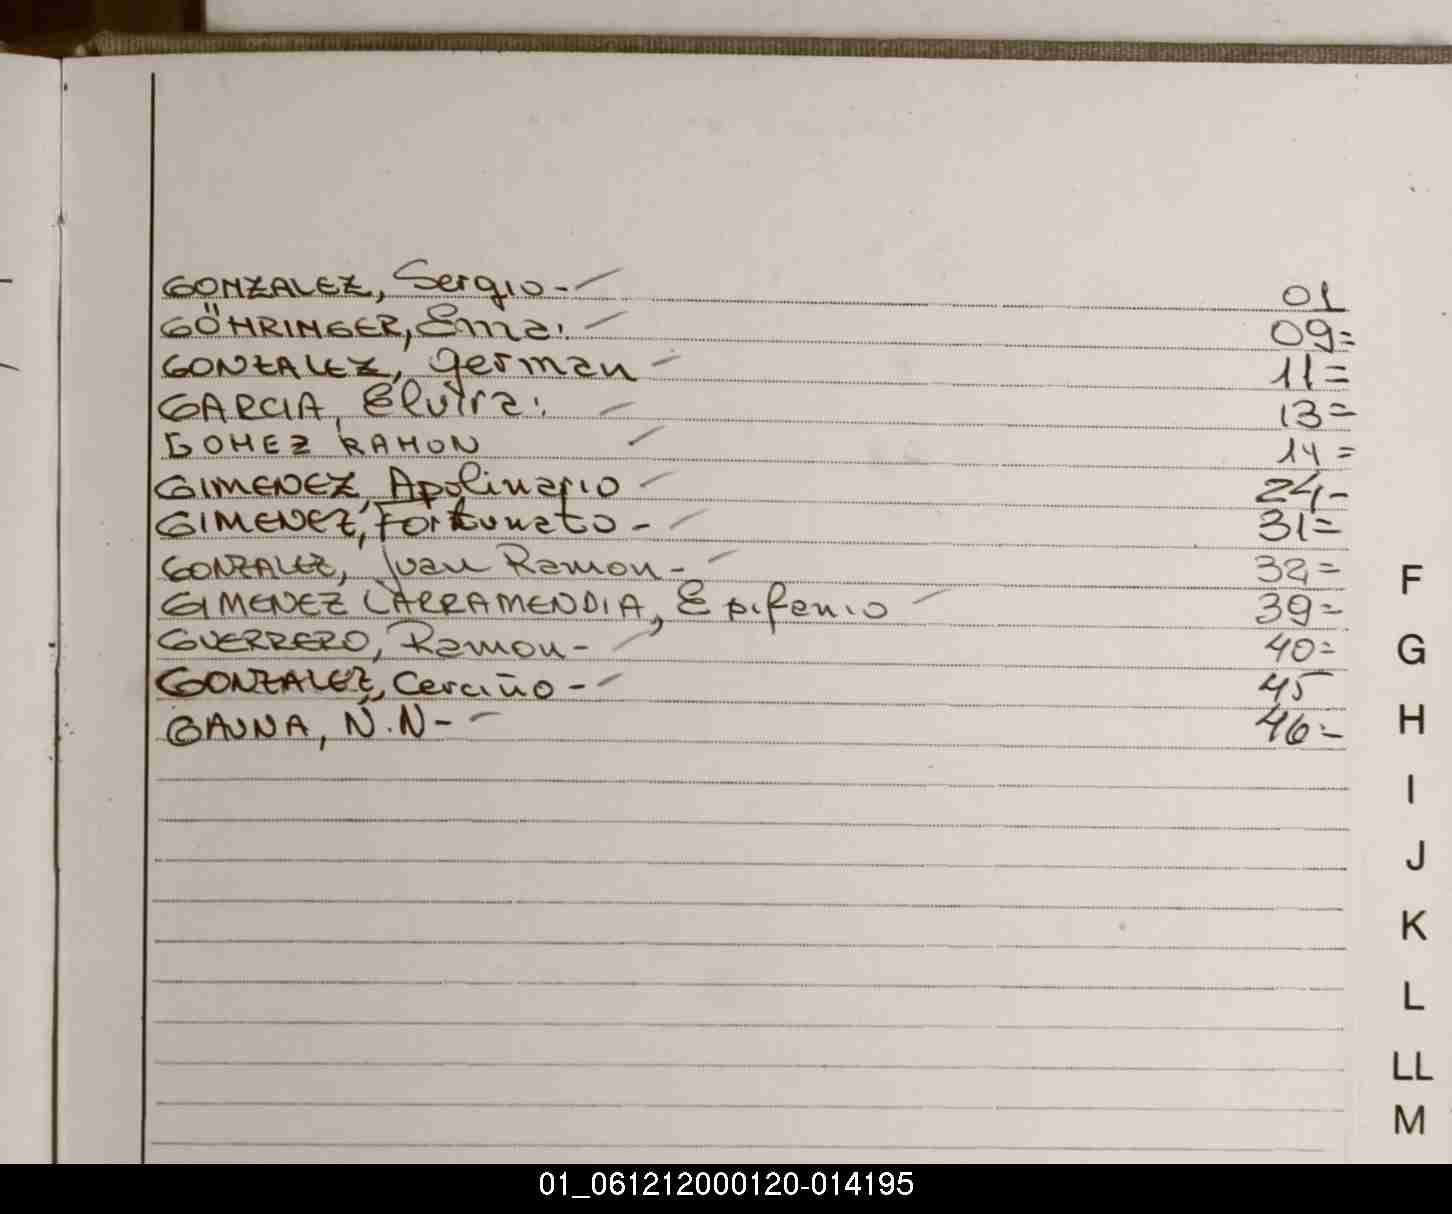 GONZALEZ, Sergio - 01
GÖHRINGER, Ema: 09=
GONZALEZ, German 11=
GARCIA, Elvira: 13=
GOMEZ RAMON 14=
GIMENEZ, Apolinario 24-
GIMENEZ, Fortunato - 31=
GONZALEZ, Juan Ramon - 32=
GIMENEZ LARRAMENDIA, Epifanio 39=
GUERRERO, Ramon - 40=
GONZALEZ, Cerciño - 45
GAUNA, N.N - 46=
F
G
H
I
J
K
L
LL
M
01_061212000120-014195